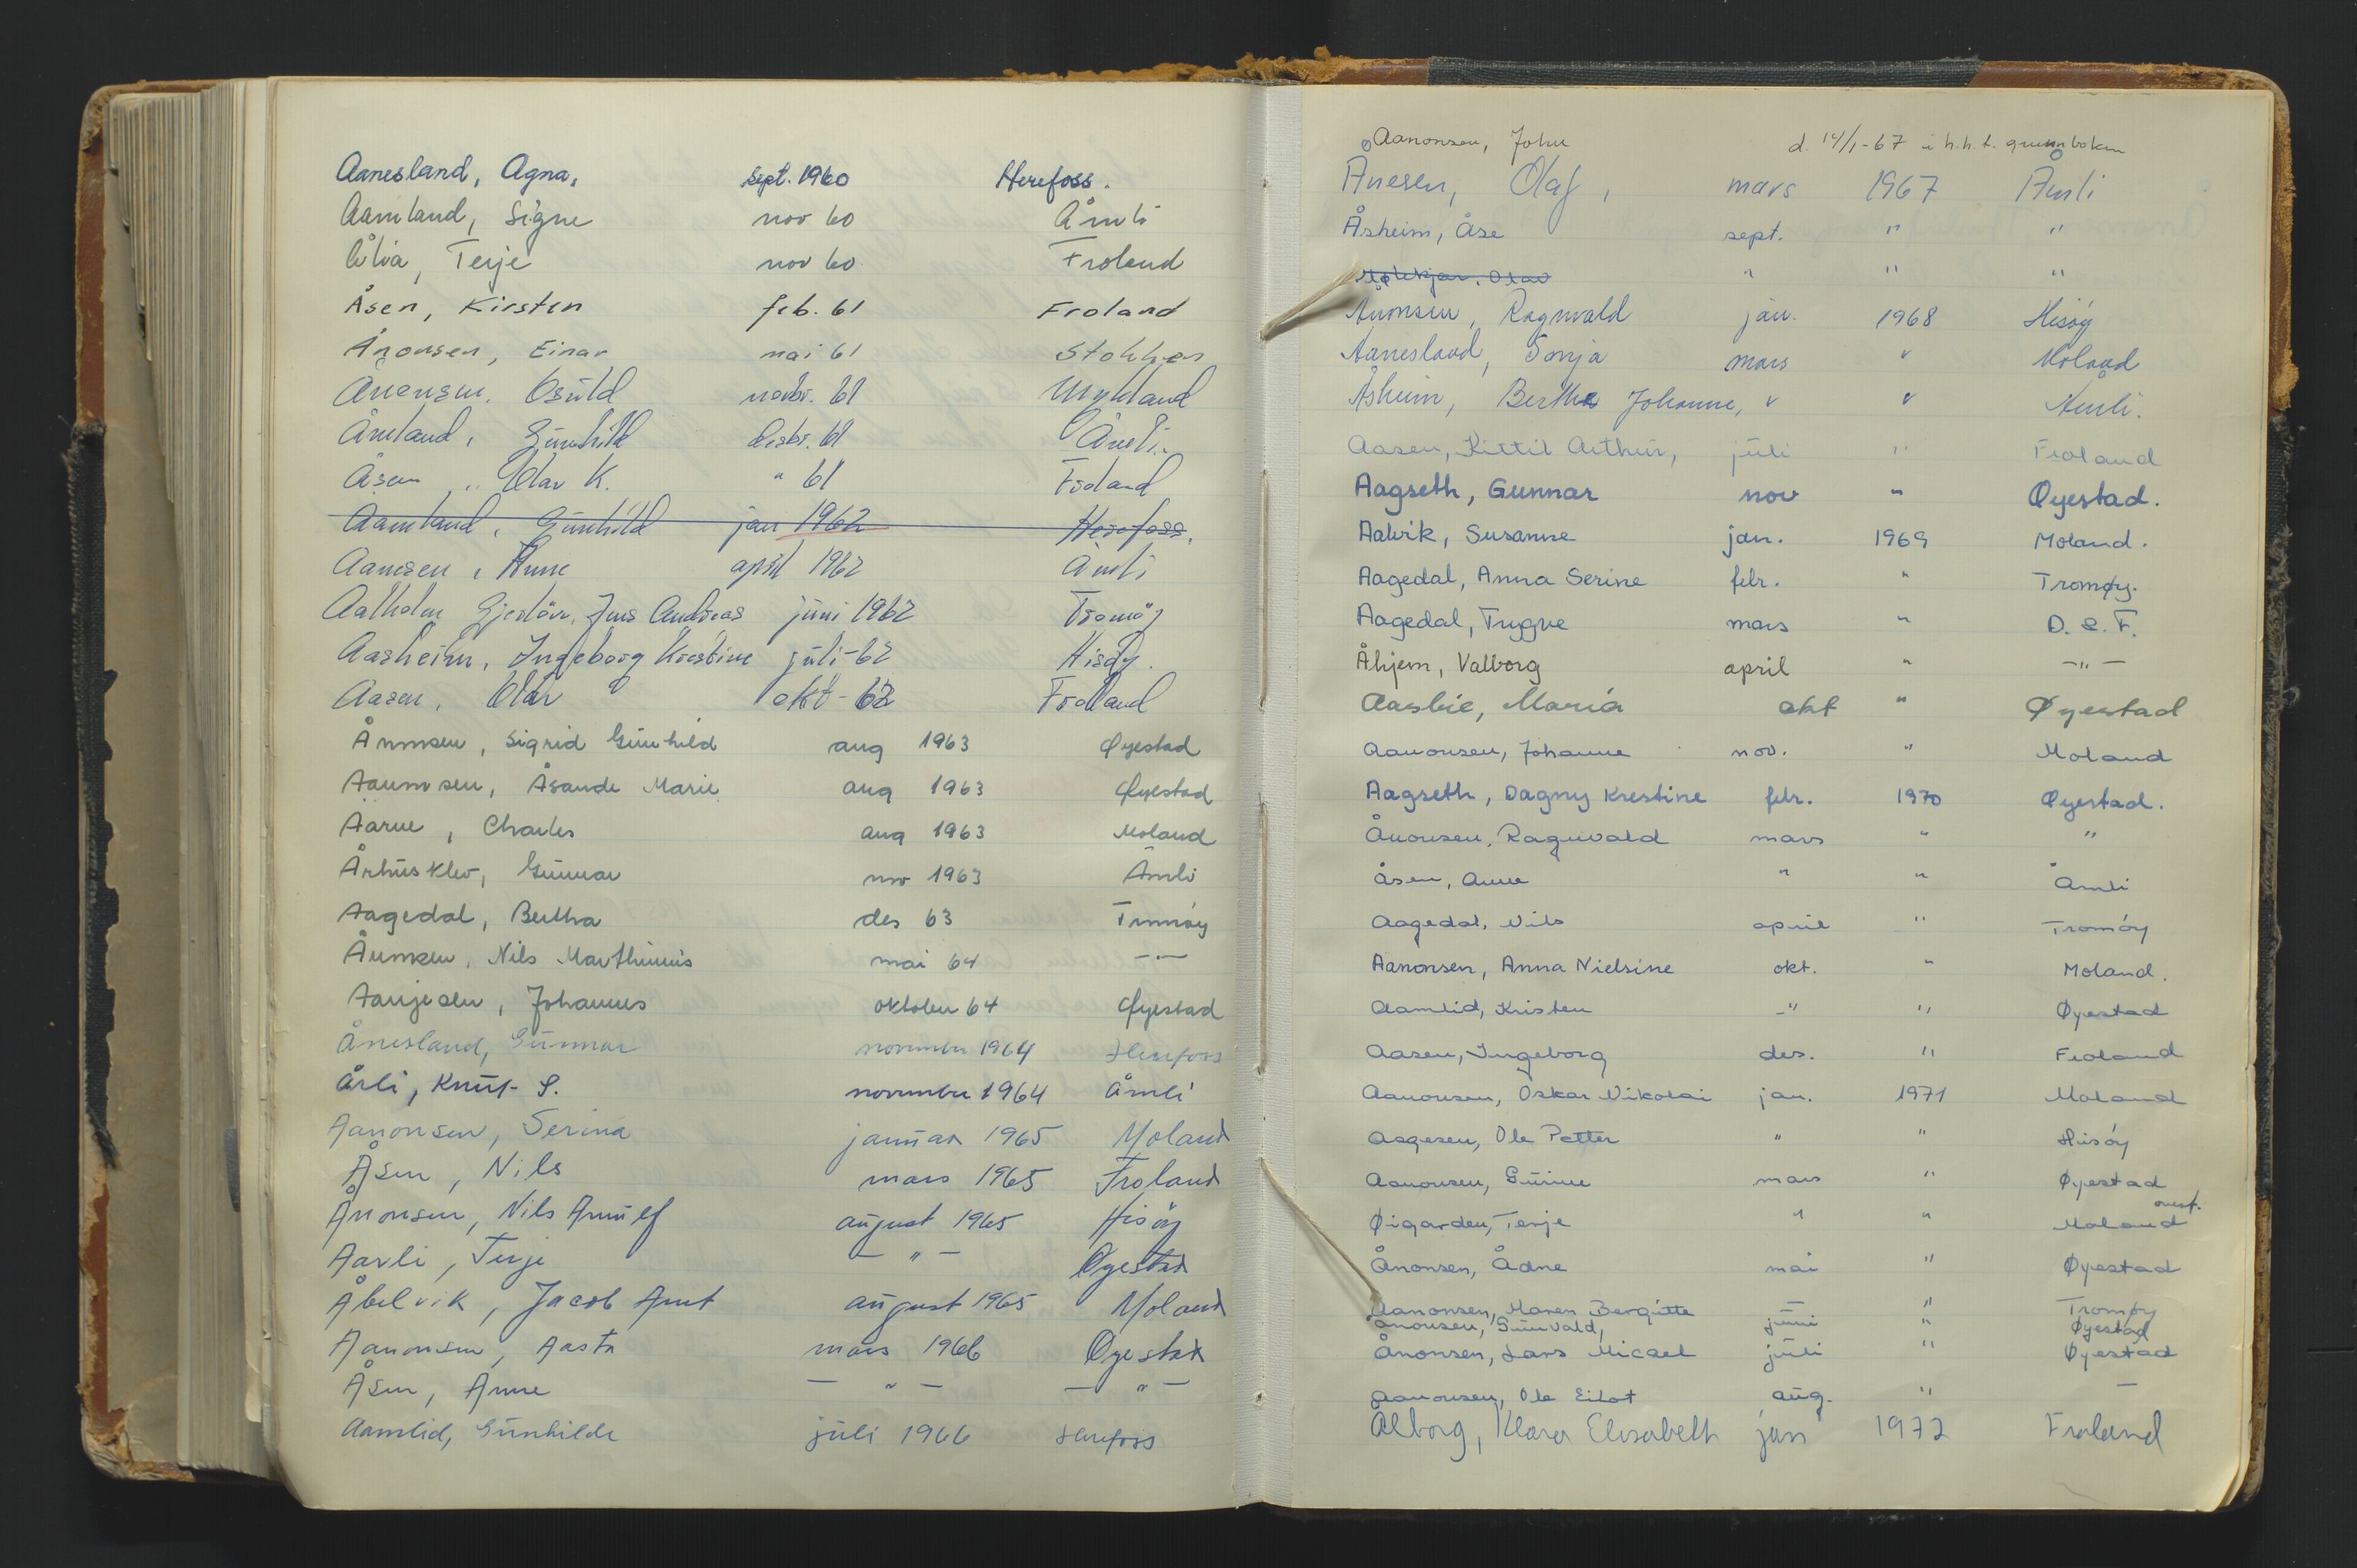 Aanesland, Agna, sept. 1960 Herefoss.
Aamland, Signe nov 60 Åmli
Terje nov 60 Froland
Åsen, Kirsten feb. 61 Froland
Ånonsen, Einar mai 61 Stokken
Ånonsen, Osuld novbr. 61 Mykland
Åmland, Gunhild desbr. 61 Åmli.
Åsen, Olav K. " 61 Froland
Aamland, Gunhild jan 1962 Herefoss.
Aanesen, Anne april 1962 Åmli
Aalholm Gjesløv, Jens Andreas juni 1962 Tromöy
Aasheim, Ingeborg Kristine juli-62 Hisöy.
Aasen, Olav okt-62 Froland
Ånonsen, Sigrid Gunhild aug 1963 Øyestad
Aanonsen, Åsande Marie aug 1963 Øyestad
Aarue, Charles aug 1963 Moland
Århusklev, Gunnar nov 1963 Åmli
Aagedal, Bertha des 63 Tromøy
Ånonsen, Nils Marthinius mai 64 —"—
Johannes oktober 64 Øyestad
Ånesland, Gunnar november 1964 Herefoss
Årli, Knut S. november 1964 Åmli
Aanonsen, Serina januar 1965 Moland
Åsen, Nils mars 1965 Froland
Ånonsen, Nils Arnulf august 1965 Hisöy
Aarli, Terje — " — Øyestad
Åbelvik, Jacob Arnt august 1965 Moland
Aanonsen, Aasta mars 1966 Øyestad
Åsen, Anne — " — — " —
Aamlid, Gunhilde juli 1966 Herefoss
Aanonsen, John d. 14/1-67 i h.h.t. grunnboken
Ånesen, Olaf, mars 1967 Åmli
Åsheim, Åse sept. " "
Olav " " "
Ånonsen, Ragnvald jan. 1968 Hisøy
Aanesland, Sonja mars " Moland
Åsheim, Bertha Johanne, " " Åmli.
Aasen, Kittil Arthur, juli " Froland
Aagseth, Gunnar nov " Øyestad.
Aalvik, Susanne jan. 1969 Moland.
Aagedal, Anna Serine febr. " Tromøy.
Aagedal, Trygve mars " D. S. F.
Åhjem, Valborg april " —"—
Aasbie, Maria okt " Øyestad
Aanonsen, Johanne nov. " Moland
Aagseth, Dagny Krestine febr. 1970 Øyestad.
Ånonsen, Ragnvald mars " "
Åsen, Anne " " Åmli
Aagedal, Nils april " Tromöy
Aanonsen, Anna Nielsine okt. " Moland.
Aamlid, Kristen —" " Øyestad
Aasen, Ingeborg des. " Froland
Aanonsen, Oskar Nikolai jan. 1971 Moland
Aagesen, Ole Petter " " Hisöy
Aanonsen, Gunne mars " Øyestad
Øigarden, Terje " " Moland overf.
Ånonsen, Ådne mai " Øyestad
Aanonsen, Maren Bergitte — " Tromøy
Ånonsen, Gunvald, juni " Øyestad
Ånonsen, Lars Micael juli " Øyestad
Aanonsen, Ole Eilot aug. " —
Ålborg, Klara Elisabeth jan 1972 Froland